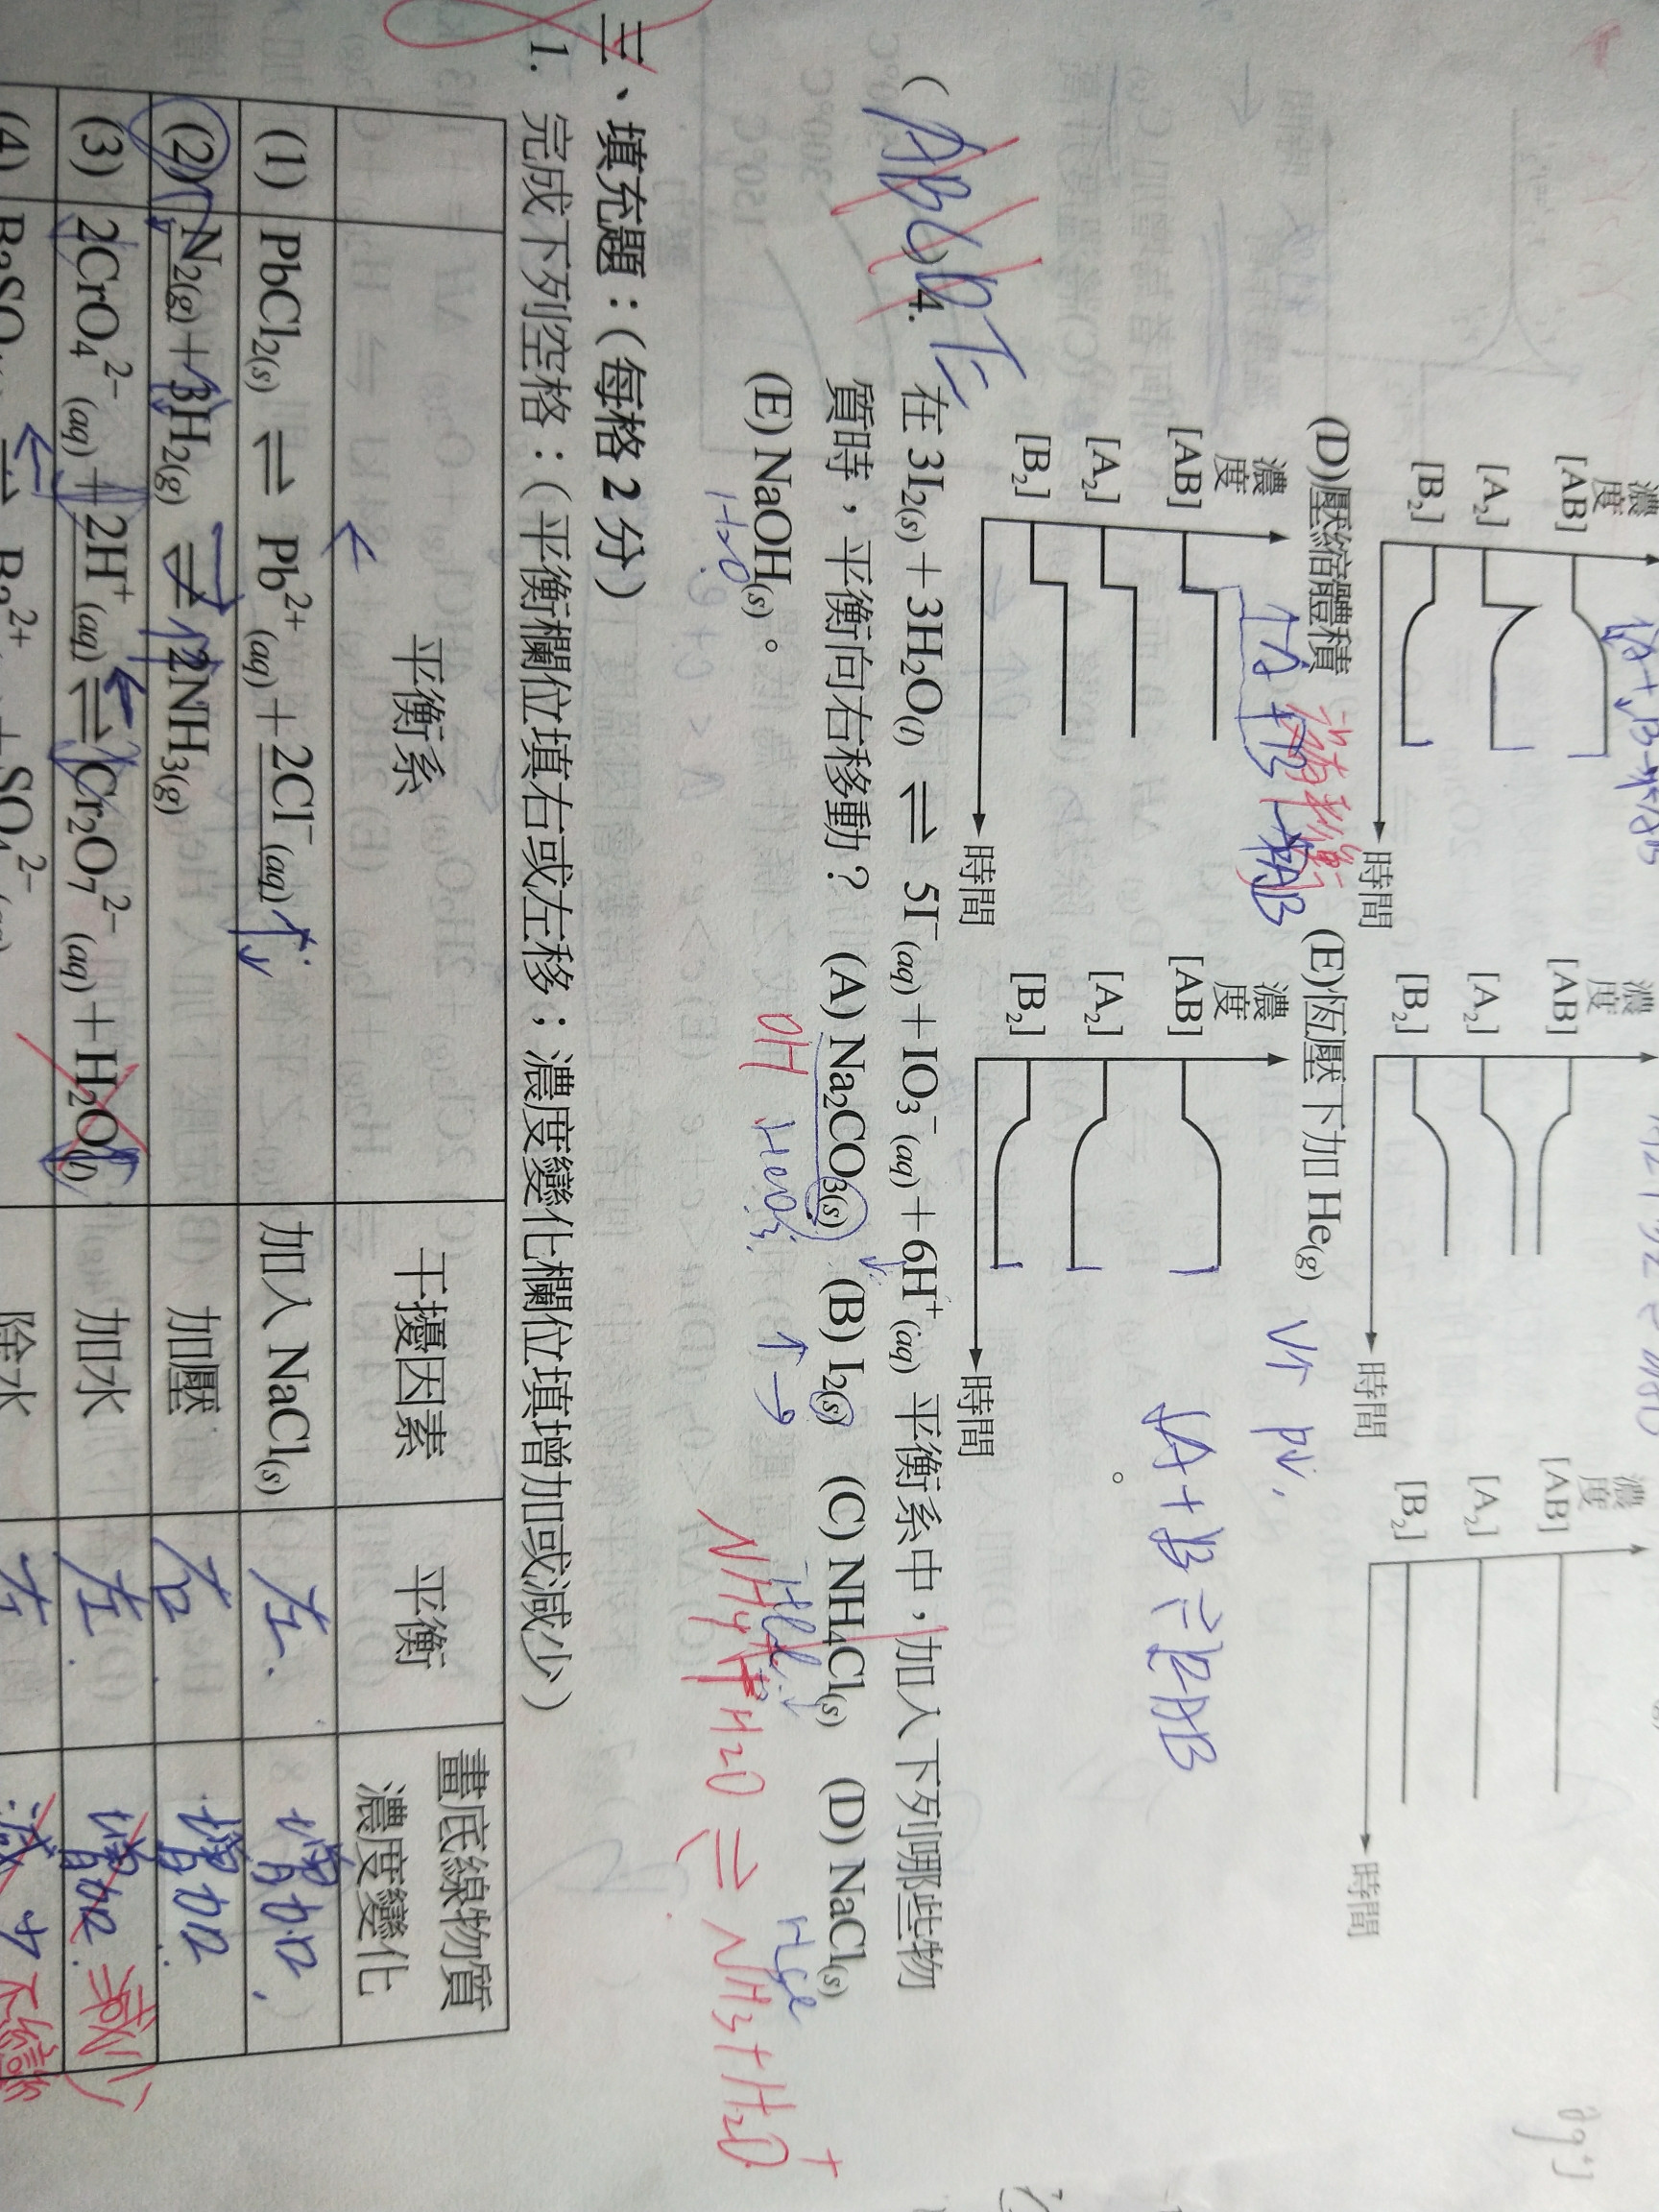 濃度
[AB]
[A₂]
[B₂]
時間
濃度
[AB]
[A₂]
[B₂]
時間
濃度
[AB]
[A₂]
[B₂]
時間
(D)壓縮體積
(E)恆壓下加 He(g)
V↑ P↓
濃度
[AB]
[A₂]
[B₂]
時間
濃度
[AB]
[A₂]
[B₂]
時間
4. 在 3I₂(s) + 3H₂O(l) ⇌ 5I⁻(aq) + IO₃⁻(aq) + 6H⁺(aq) 平衡系中，加入下列哪些物
質時，平衡向右移動？ (A) Na₂CO₃(s) (B) I₂(s) (C) NH₄Cl(s) (D) NaCl(s)
(E) NaOH(s)。
H₂O
OH
NH₄⁺ + H₂O ⇌ NH₃ + H₃O⁺
三、填充題：（每格 2 分）
1. 完成下列空格：（平衡欄位填右或左移；濃度變化欄位填增加或減少）
平衡系 干擾因素 平衡 畫底線物質濃度變化
(1) PbCl₂(s) ⇌ Pb²⁺(aq) + 2Cl⁻(aq) 加入 NaCl(s) 左 增加
(2) N₂(g) + 3H₂(g) ⇌ 2NH₃(g) 加壓 右 增加
(3) 2CrO₄²⁻(aq) + 2H⁺(aq) ⇌ Cr₂O₇²⁻(aq) + H₂O(l) 加水 左 增加 減少
(4) BaSO₄(s) ⇌ Ba²⁺ + SO₄²⁻(aq) 除水 左 減少